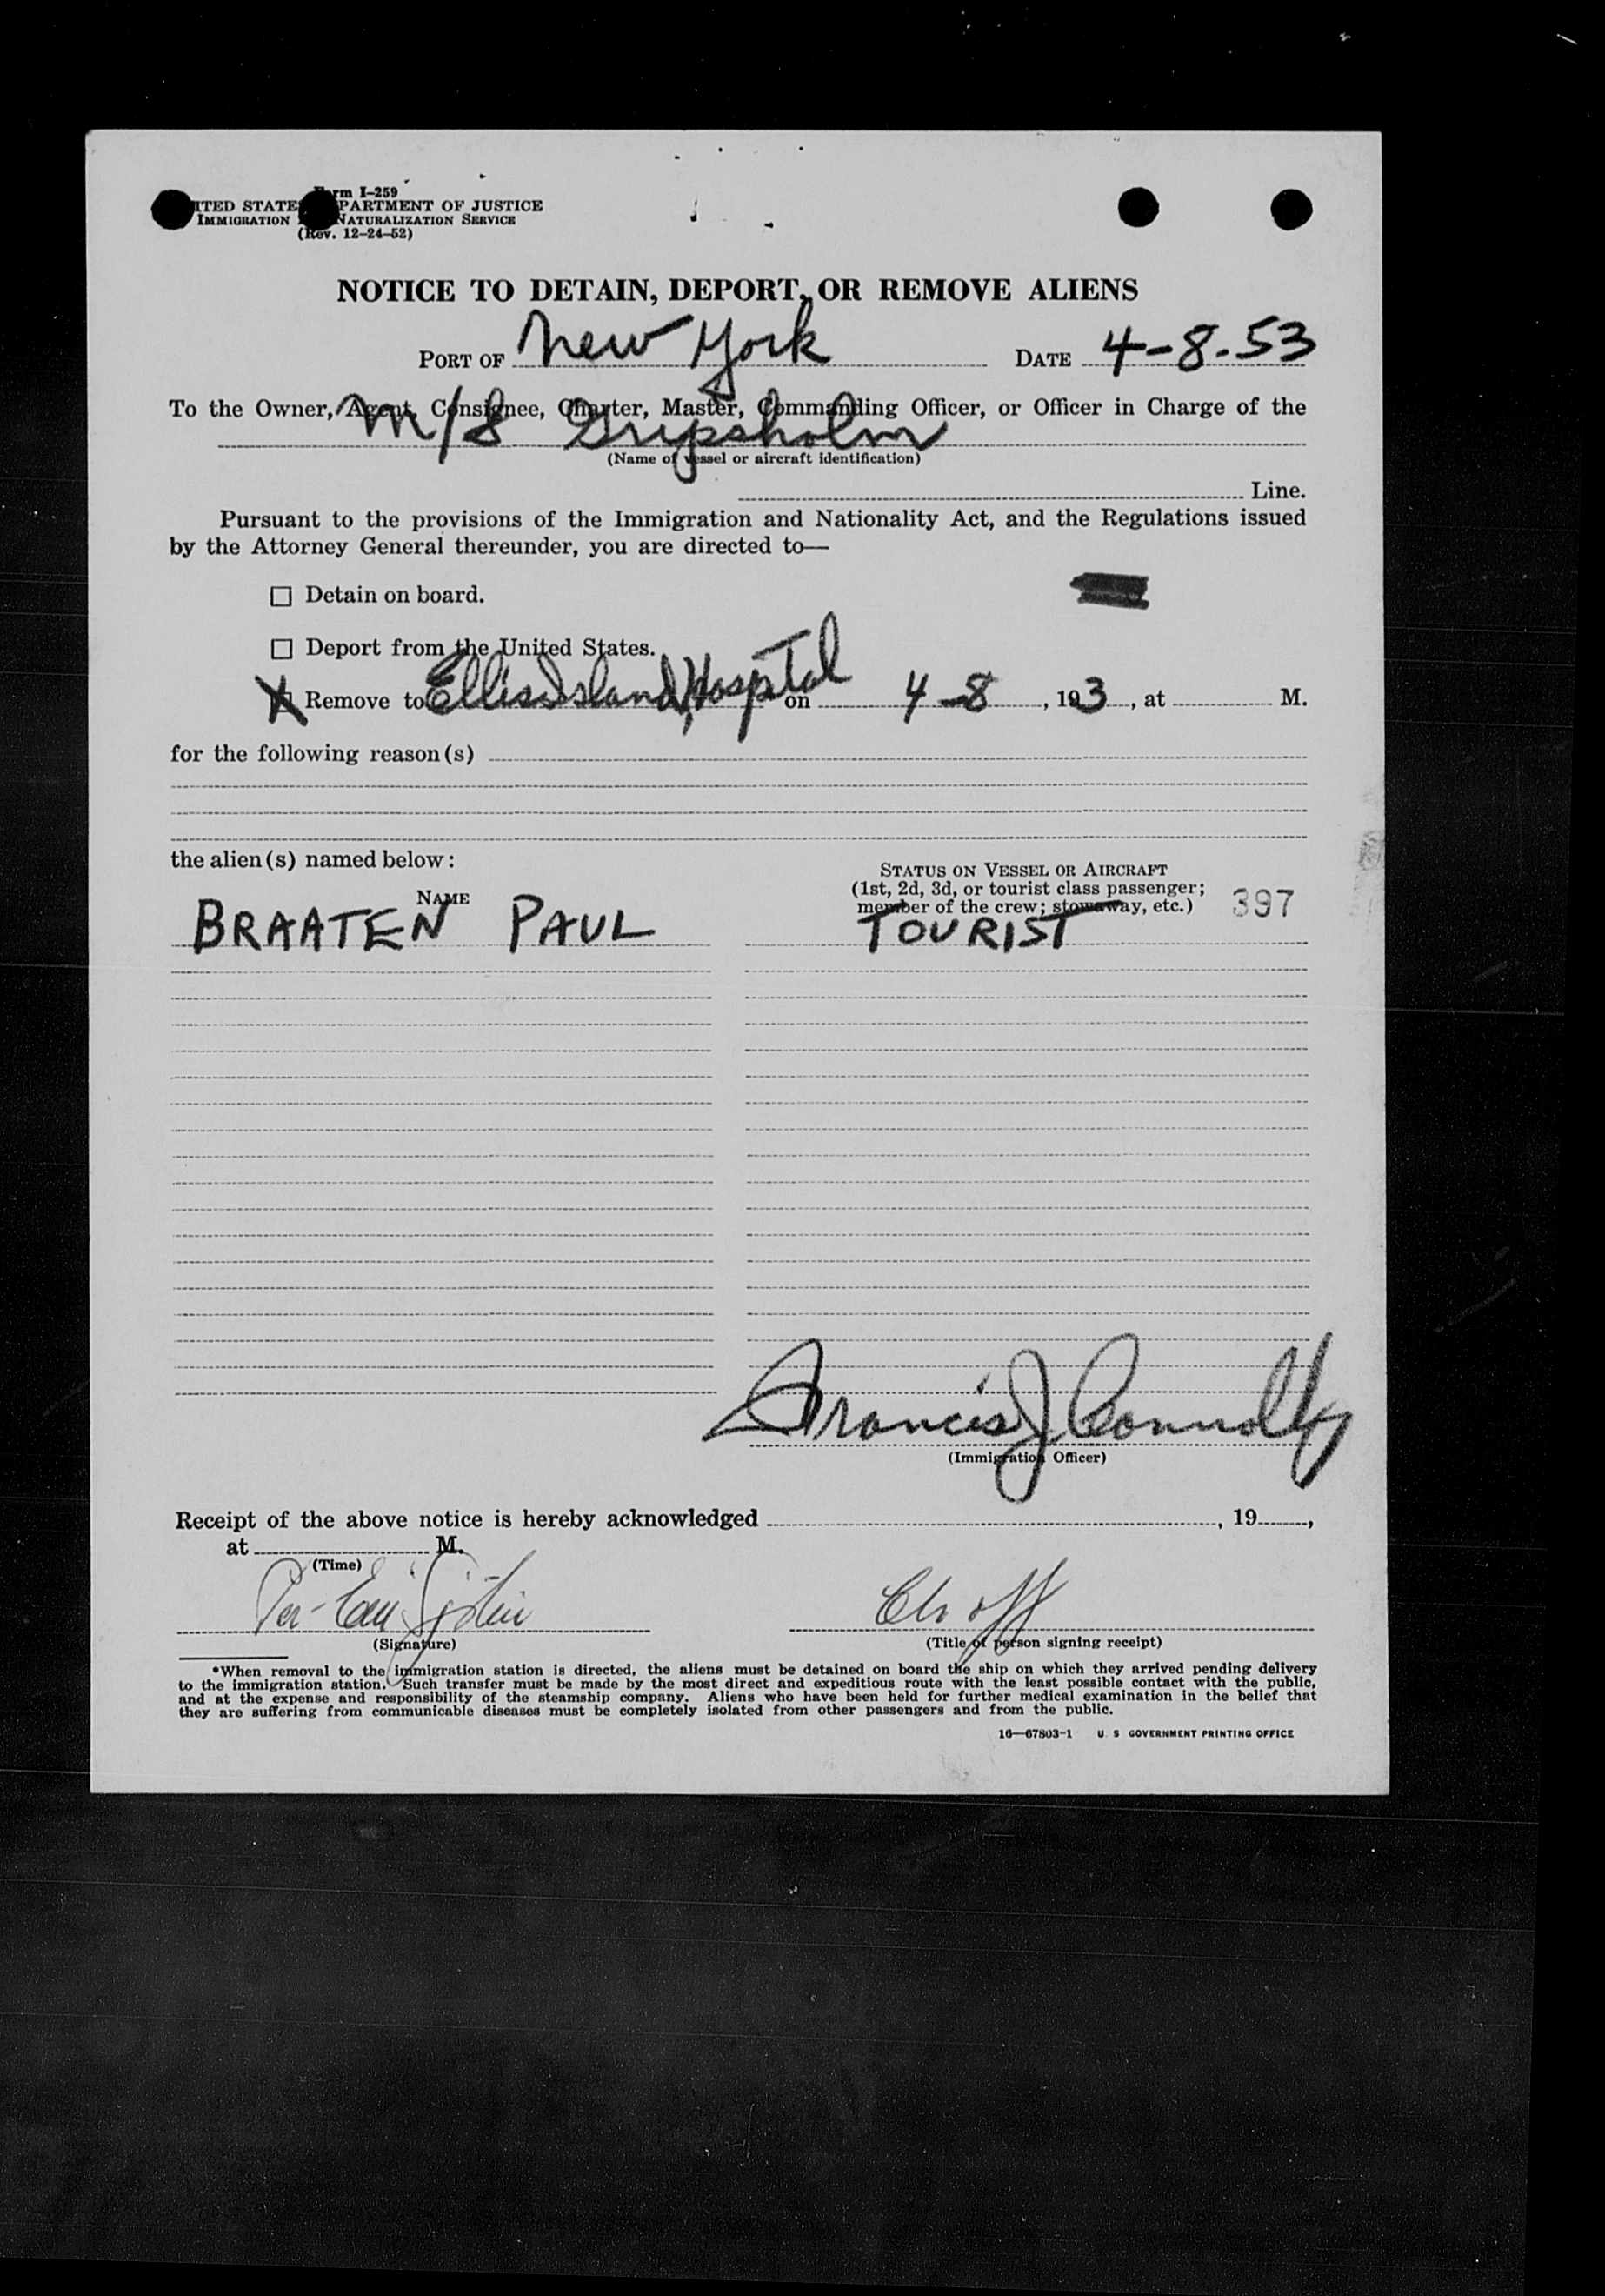 Form I-259
ITED STATE PARTMENT OF JUSTICE
IMMIGRATION NATURALIZATION SERVICE
(Rev. 12-24-52)
NOTICE TO DETAIN, DEPORT, OR REMOVE ALIENS
PORT OF New York DATE 4-8-53
To the Owner, Agent, Consignee, Charter, Master, Commanding Officer, or Officer in Charge of the
M/S Gripsholm
(Name of vessel or aircraft identification)
Line.
Pursuant to the provisions of the Immigration and Nationality Act, and the Regulations issued
by the Attorney General thereunder, you are directed to—
☐ Detain on board.
☐ Deport from the United States.
X Remove to Ellis Island, Hospital on 4-8, 193, at M.
for the following reason(s)
the alien(s) named below:
STATUS ON VESSEL OR AIRCRAFT
(1st, 2d, 3d, or tourist class passenger;
member of the crew; stowaway, etc.) 397
NAME
BRAATEN PAUL TOURIST
Francis J Connolly
(Immigration Officer)
Receipt of the above notice is hereby acknowledged , 19 ,
at M.
(Time)
Ch off
(Signature) (Title of person signing receipt)
*When removal to the immigration station is directed, the aliens must be detained on board the ship on which they arrived pending delivery
to the immigration station. Such transfer must be made by the most direct and expeditious route with the least possible contact with the public,
and at the expense and responsibility of the steamship company. Aliens who have been held for further medical examination in the belief that
they are suffering from communicable diseases must be completely isolated from other passengers and from the public.
16—67803-1 U. S GOVERNMENT PRINTING OFFICE